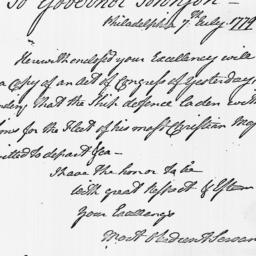 To Governor Johnson —
Philadelphia 7th July 1779
Herewith enclos'd your Excellency will
a Copy of an Act of Congress of Yesterday,
that the Ship defence Laden with
for the Fleet of his most Christian
to depart &ca —
I have the honor to be
with great respect & Esteem
Your Excellencys
Most Obedient